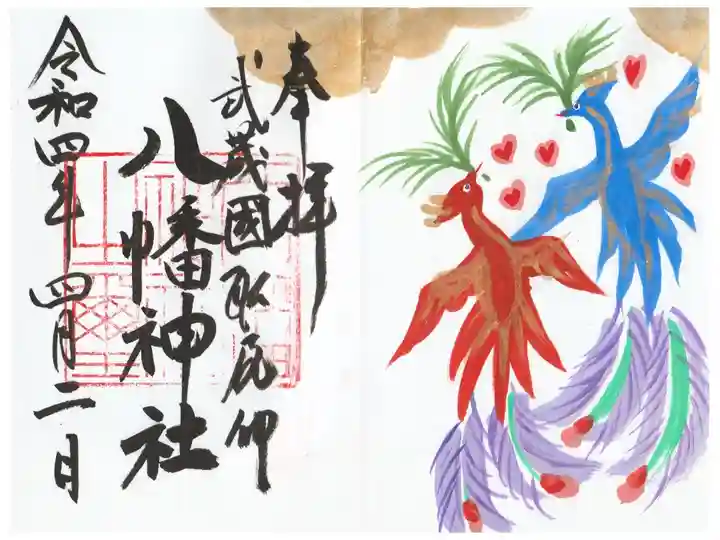 奉拝
武茂國取尾仰
八幡神社
令和四年 四月二日